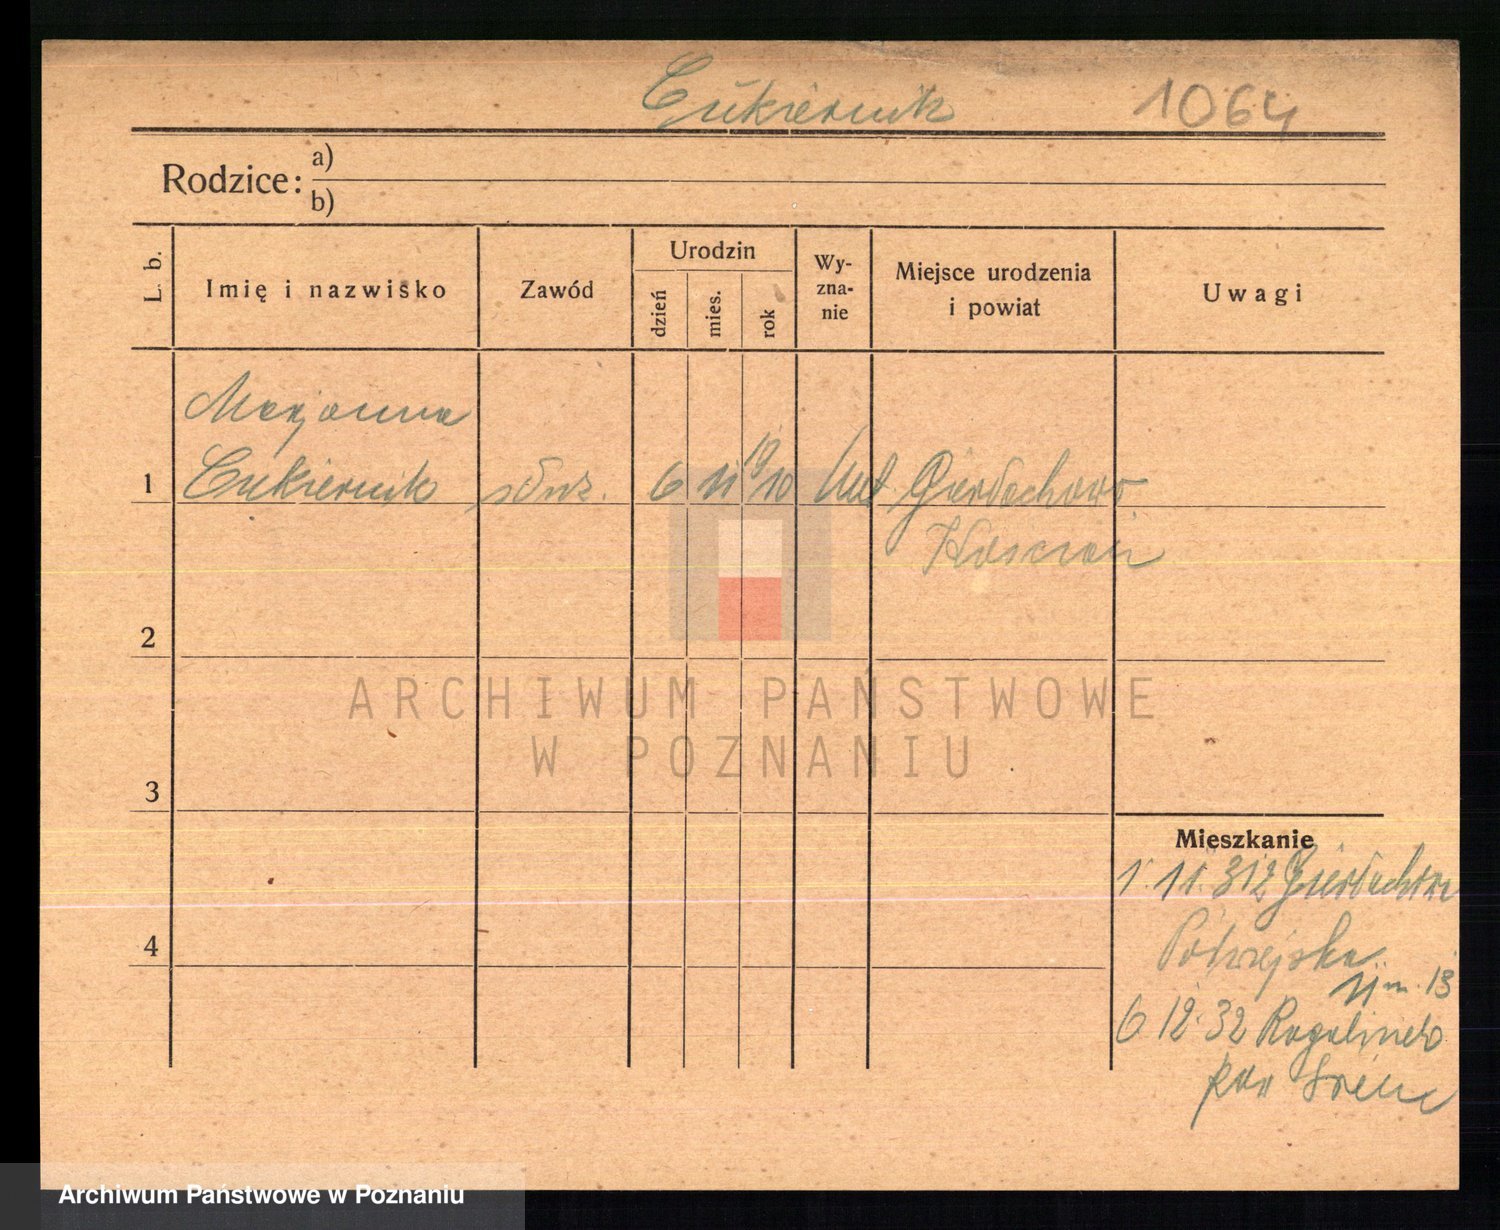 Cukiernik 1064
Rodzice: a)
b)
L. b.
Imię i nazwisko
Zawód
Urodzin
dzień
mies.
rok
Wy-
zna-
nie
Miejsce urodzenia
i powiat
Uwagi
Marjanna
1 Cukiernik służ. 6 11 1910 Gierłachowo
Kościan
2
ARCHIWUM PAŃSTWOWE
W POZNANIU
3
Mieszkanie
1. 11. 32 Gierłachowo
4
Półwiejska
11 m. 13
6 12 32 Rogalinek
pow Śrem
Archiwum Państwowe w Poznaniu